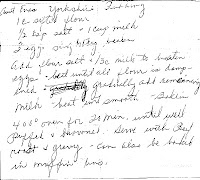 Aunt Eva's Yorkshire Pudding
1 c sifted flour
1/2 tsp salt - 1 cup milk
2 eggs well beaten
Add flour salt + 1/3 c milk to beaten
eggs - beat until all flour is damp-
ened - gradually add remaining
milk - beat until smooth - Bake in
400° oven for 30 min. until well
puffed & browned. Serve with Roast
roast & gravy - can also be baked
in muffin pans.